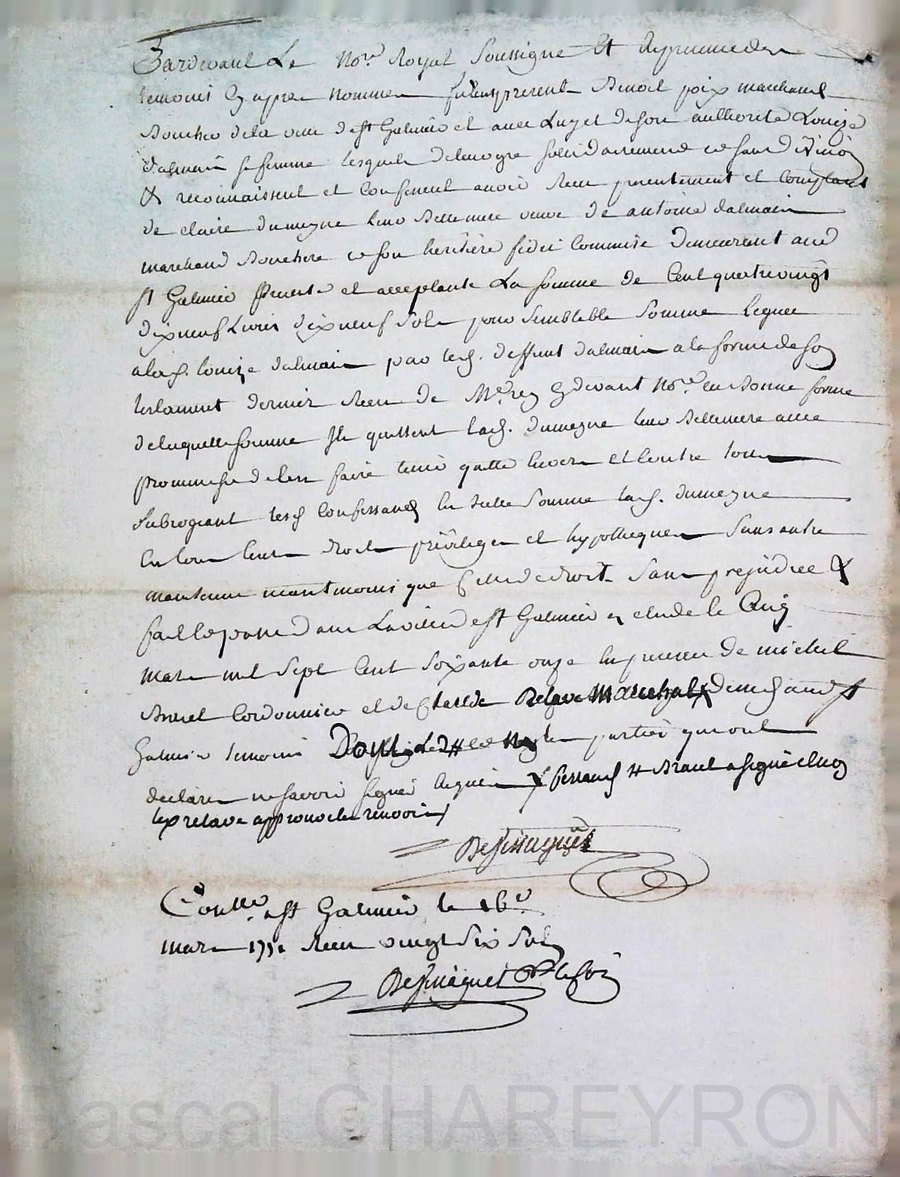 Pardevant Le No.re Royal Soussigné Et En presence des
temoins Cy apres nommes furent presents Benoit poix marchand
Boucher de la ville de st Galmier et avec Luy et de son authorité Louize
dalmain sa femme lesquels de leur gré solidairement ce sans division
& reconnaissent et Confessent avoir Receu presentement et Comptant
de claire dumeyne leur Belle mere veuve de antoine dalmain
marchand Bouchere ce son heritière fidei Commise demeurant aud
st Galmier presente et acceptante La somme de Cent quatrevingt
dixneuf Livres dixneuf Sols pour Semblable Somme Leguée
a lad. louize dalmain par led. deffunt dalmain a la forme de son
testament dernier Receu de Me rey Cydevant No.re en Bonne forme
de laquelle somme Ils quittent lad. dumeyne leur Bellemere avec
promesse de l'en faire tenir quitte envers et Contre tous
subrogeant lesd Confessants en lad. Somme lad. dumeyne
En tous leurs droits privileges et hypotheques Sans autre
maintenue neantmoins que Celle de droit. Sans prejudice &
fait & passé dans La ville de st Galmier en etude le Cinq
mars mil Sept Cent soixante onze En presence de michel
Brunel Cordonnier et de Claude Relave Marechal demeurants aud st
Galmier temoins les parties qui ont
declaré ne savoir signer Enquis
Relave approuvé le renvoi
Dessaignes
Conlle. a st Galmier le 16e
mars 1771 Receu vingt Six Sols
Dessaignes
Pascal CHAREYRON